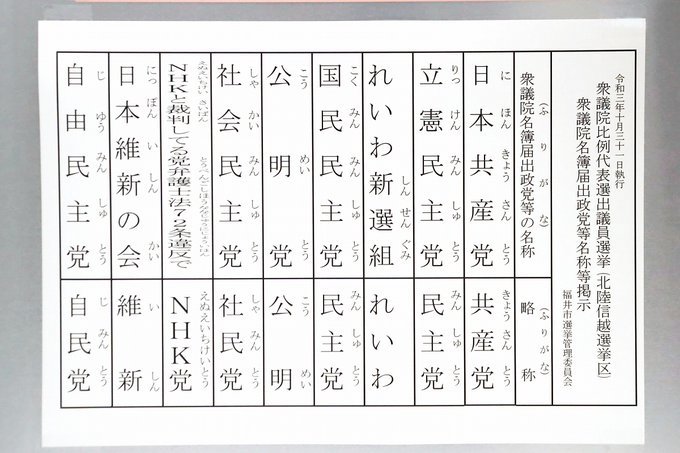 令和三年十月三十一日執行
衆議院比例代表選出議員選挙(北陸信越選挙区)
衆議院名簿届出政党等名称等掲示
福井市選挙管理委員会
(ふりがな)
衆議院名簿届出政党等の名称
(ふりがな)
略称
にほんきょうさんとう
日本共産党
きょうさんとう
共産党
りっけんみんしゅとう
立憲民主党
みんしゅとう
民主党
しんせんぐみ
れいわ新選組
れいわ
こくみんみんしゅとう
国民民主党
みんしゅとう
民主党
こうめいとう
公明党
こうめい
公明
しゃかいみんしゅとう
社会民主党
しゃみんとう
社民党
えぬえいちけい さいばん とうべんごしほうななじゅうにじょういはん
NHKと裁判してる党弁護士法72条違反で
えぬえいちけいとう
NHK党
にっぽんいしん かい
日本維新の会
いしん
維新
じゆうみんしゅとう
自由民主党
じみんとう
自民党